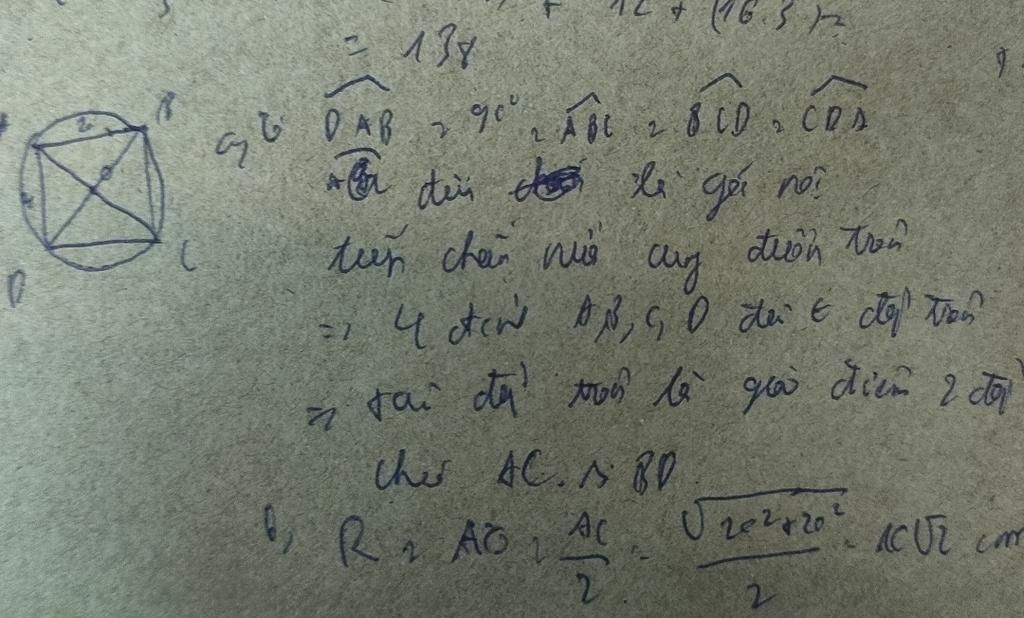 + 12 + (16.3).2
= 138
a, Vì DAB = 90° = ABC = BCD = CDA
đều là góc nội
tiếp chắn nửa cung đường tròn
=> 4 đỉnh A, B, C, D đều ∈ đg tròn
=> tâm đg tròn là giao điểm 2 đg
chéo AC và BD
b, R = AO = AC/2 = √(20²+20²)/2 = 10√2 cm
B
C
D